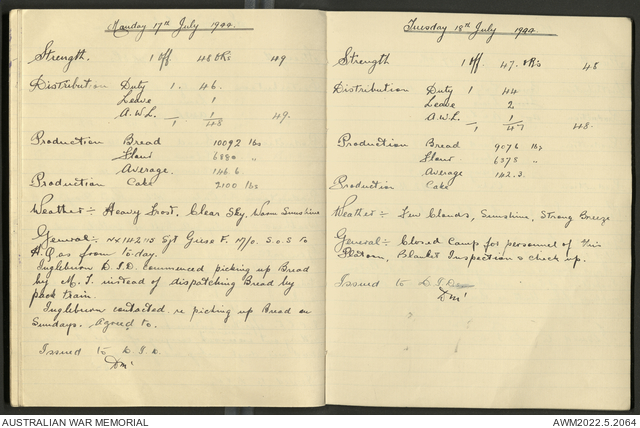 Monday 17th July 1944.
Strength. 1 Off 48 ORs 49
Distribution Duty 1. 46.
Leave 1
A.W.L. 1
1 48 49.
Production Bread 10092 lbs
Flour 6880 "
Average. 146.6
Production Cake 2100 lbs
Weather :- Heavy Frost. Clear Sky. Warm Sunshine
General :- NX142115 Sgt Giese F. M/O. S.O.S to
H.Q as from to-day.
Ingleburn D.I.D. commenced picking up Bread
by M.T. instead of dispatching Bread by
train.
Ingleburn contacted re picking up Bread on
Sundays. Agreed to.
Issued to D.I.D.
Tuesday 18th July 1944
Strength 1 Off 47. ORs 48
Distribution Duty 1 44
Leave 2
A.W.L. 1
1 47 48.
Production Bread 9076 lbs
Flour 6378 "
Average 142.3.
Production Cake
Weather :- Few Clouds, Sunshine, Strong Breeze
General :- Closed Camp for personnel of
Platoon, Blanket Inspection & check up.
Issued to D.I.D
AUSTRALIAN WAR MEMORIAL
AWM2022.5.2064